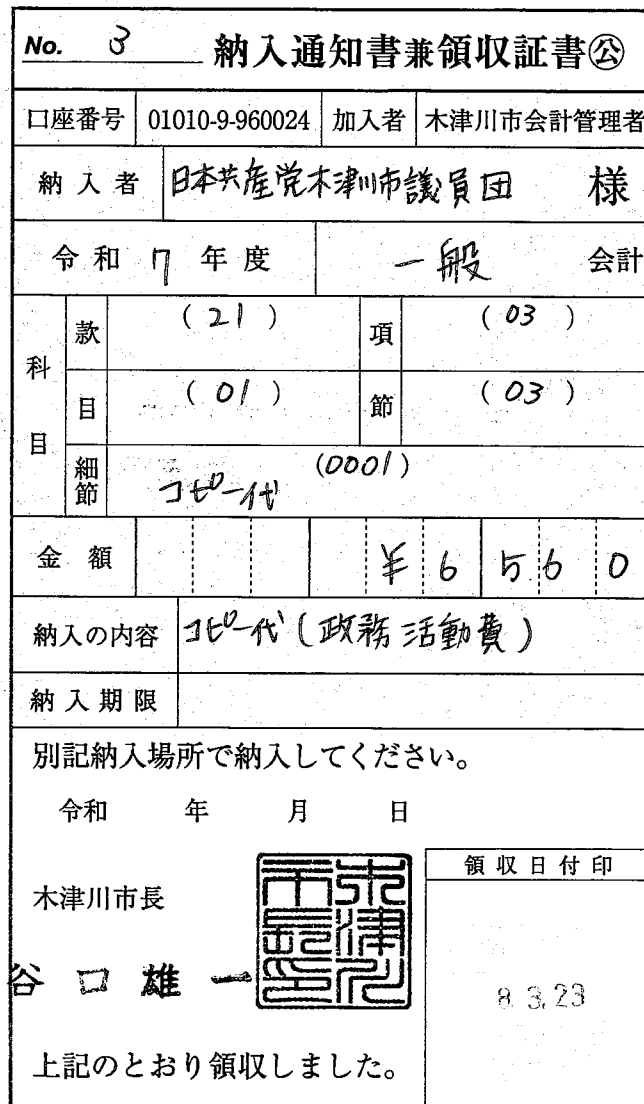 No. 3 納入通知書兼領収証書㊕
口座番号 01010-9-960024 加入者 木津川市会計管理者
納入者 日本共産党木津川市議員団 様
令和 7 年度 一般 会計
科目
款 (21) 項 (03)
目 (01) 節 (03)
細節 (0001)
コピー代
金額 ¥6560
納入の内容 コピー代(政務活動費)
納入期限
別記納入場所で納入してください。
令和 年 月 日
木津川市長
木津川市長印
谷口雄一
領収日付印
8.3.23
上記のとおり領収しました。